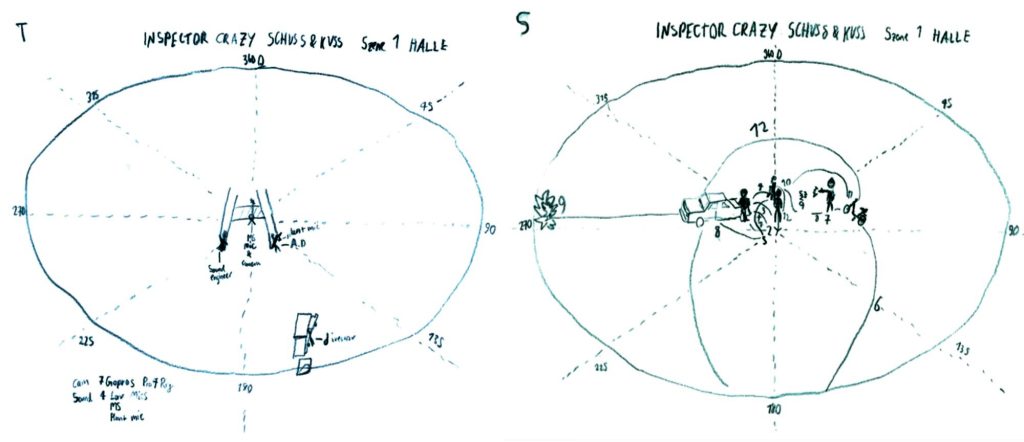 T
INSPECTOR CRAZY SCHUSS & KUSS Szene 1 HALLE
360
315
45
270
90
plant mic
A.D
MS
mic
&
camera
Sound
engineer
director
225
135
180
Cam 7 Gopros Pro7 Rig
Sound 4 Lav Mics
MS
Plant mic
S
INSPECTOR CRAZY SCHUSS & KUSS Szene 1 HALLE
360
315
45
12
9
10
270
90
8
5
6
225
135
180